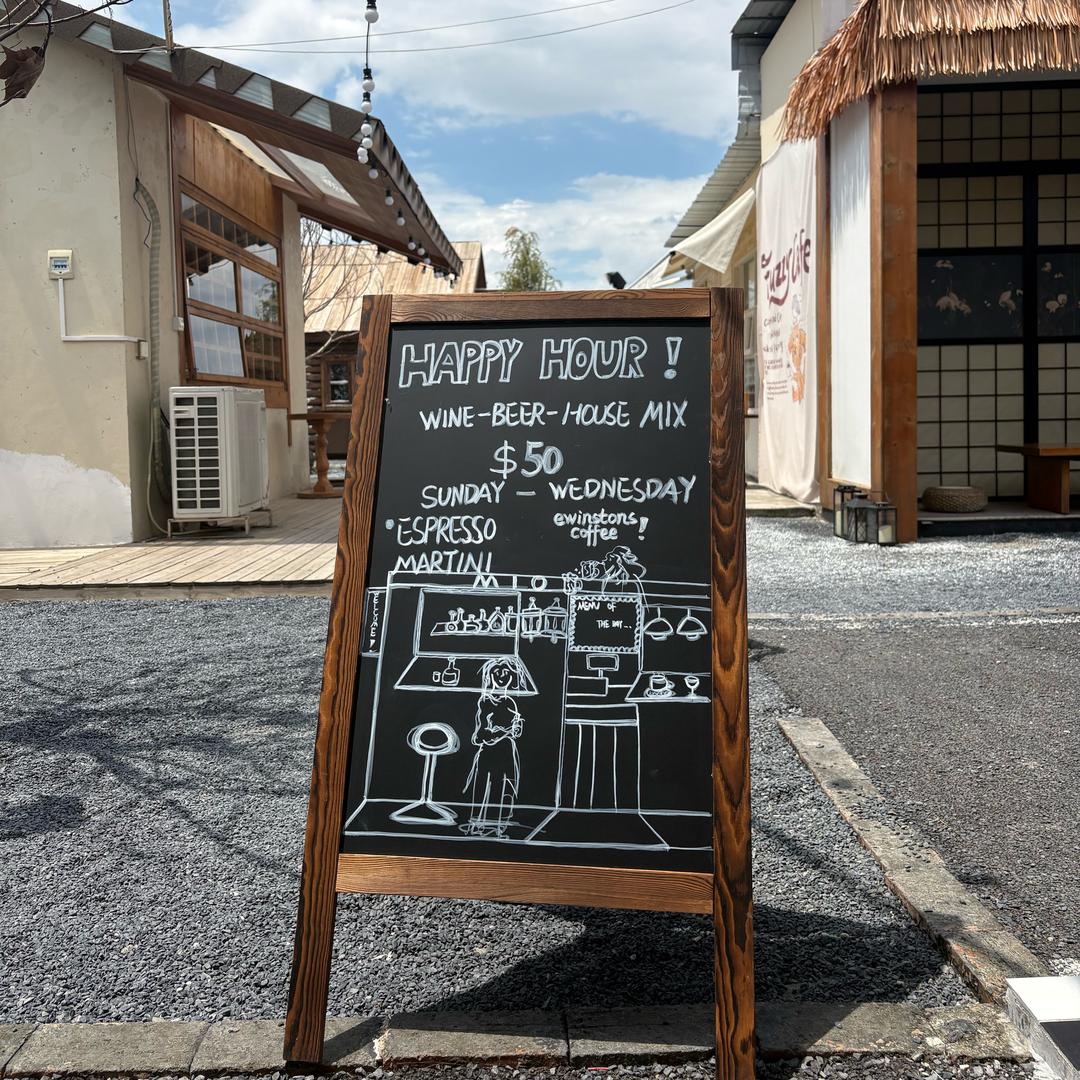 HAPPY HOUR !
WINE-BEER-HOUSE MIX
$50
SUNDAY - WEDNESDAY
ESPRESSO
MARTINI
ewinstons
coffee !
MENU OF
THE DAY...
Fuzzy Cafe